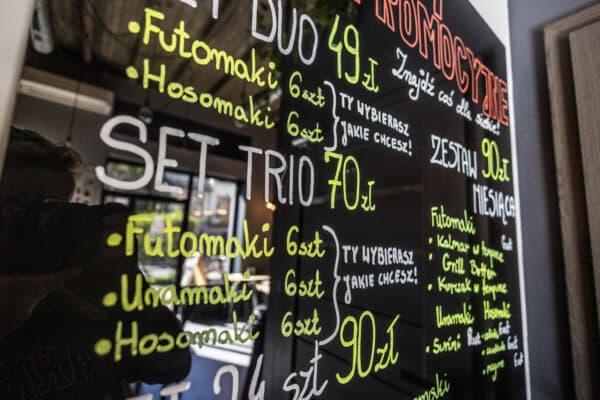 SET DUO 49 zł
• Futomaki 6szt
• Hosomaki 6szt
TY WYBIERASZ
JAKIE CHCESZ!
SET TRIO 70 zł
• Futomaki 6szt
• Uramaki 6szt
• Hosomaki 6szt
TY WYBIERASZ
JAKIE CHCESZ!
24 szt 90 zł
PROMOCYJNE
Znajdź coś dla siebie!
ZESTAW 90 zł
MIESIĄCA
Futomaki 6szt
• Kalmar w tempurze
• Grill Butter
• Kurczak w tempurze
Uramaki
• Surimi 8szt
Hosomaki
6szt
6szt
6szt